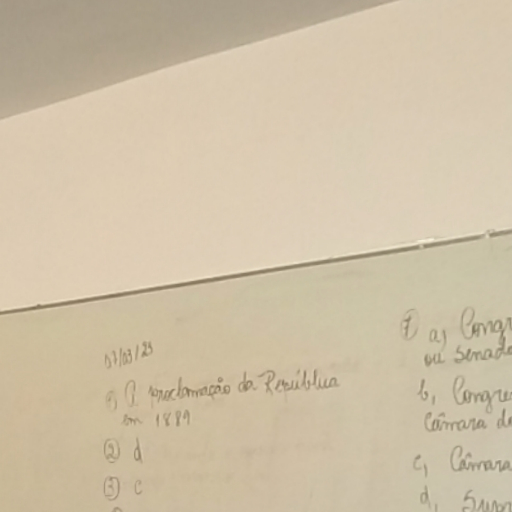 07/03/23
1) A proclamação da República
em 1889
2) d
3) c
7) a) Congr
ou Senado
b) Congre
Câmara d
c) Câmara
d)